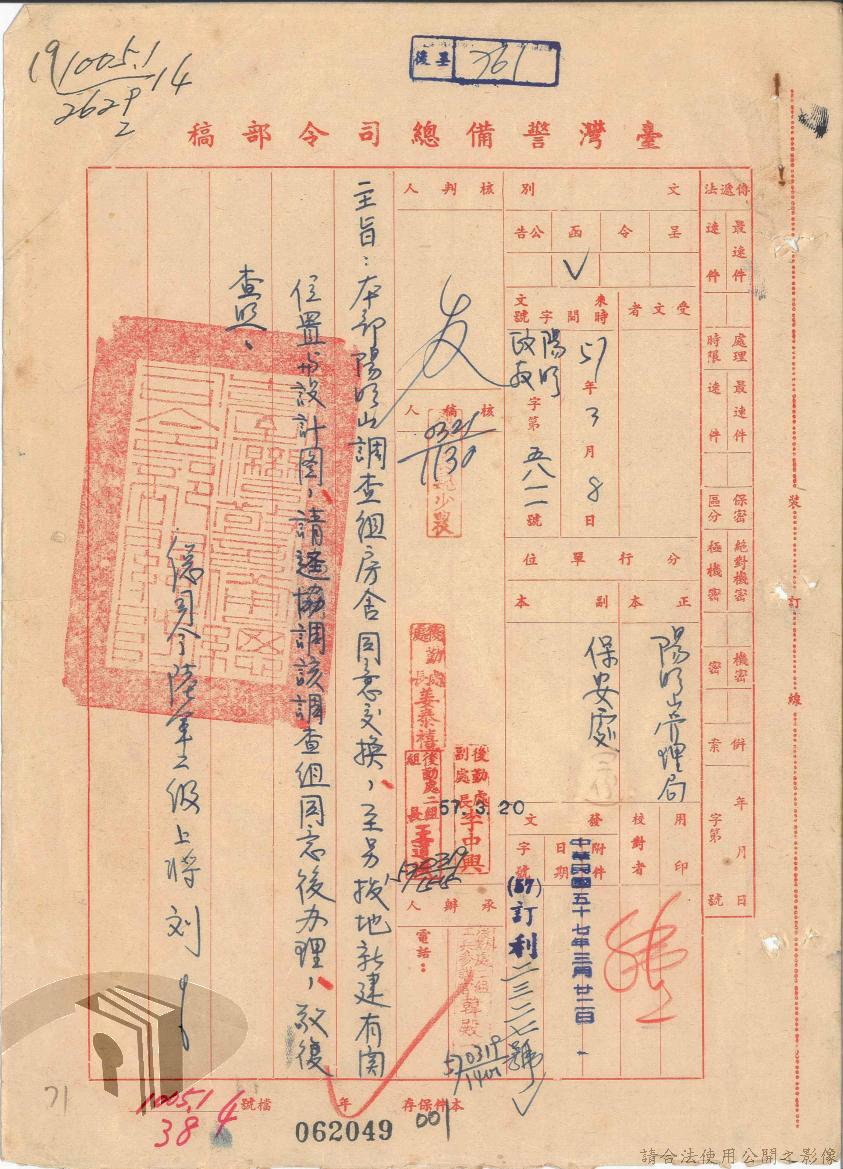 後墨 361
19 1005.1 14
2629
2
臺灣警備總司令部稿
傳遞法
最速件
速件
處理時限
最速件
速件
保密區分
絕對機密
極機密
機密
密
併案
年 月 日
字第 號
文別
呈
令
函
公告
✓
受文者
來文
時間
字號
57年3月8日
陽明政教字第五八二一號
分行單位
正本
副本
陽明山管理局
保安處
用印
校對者
發文
附件
日期
字號
中華民國五十七年三月廿二日
(57)訂利二三二七號
核判人
友
核稿人
0321
1130
後勤處處長姜泰禧
後勤處副處長李中興
後勤處二組組長
57.3.20
承辦人
電話：
0319
1400
主旨：本部陽明山調查組房舍同意交換，至另撥地新建有関
位置与設計图，請逕協調該調查組同意後办理，敬復
查照。
總司令陸軍二級上將刘
裝訂線
檔號
1005.1
38 4
本件保存 年
062049
001
71
請合法使用公開之影像